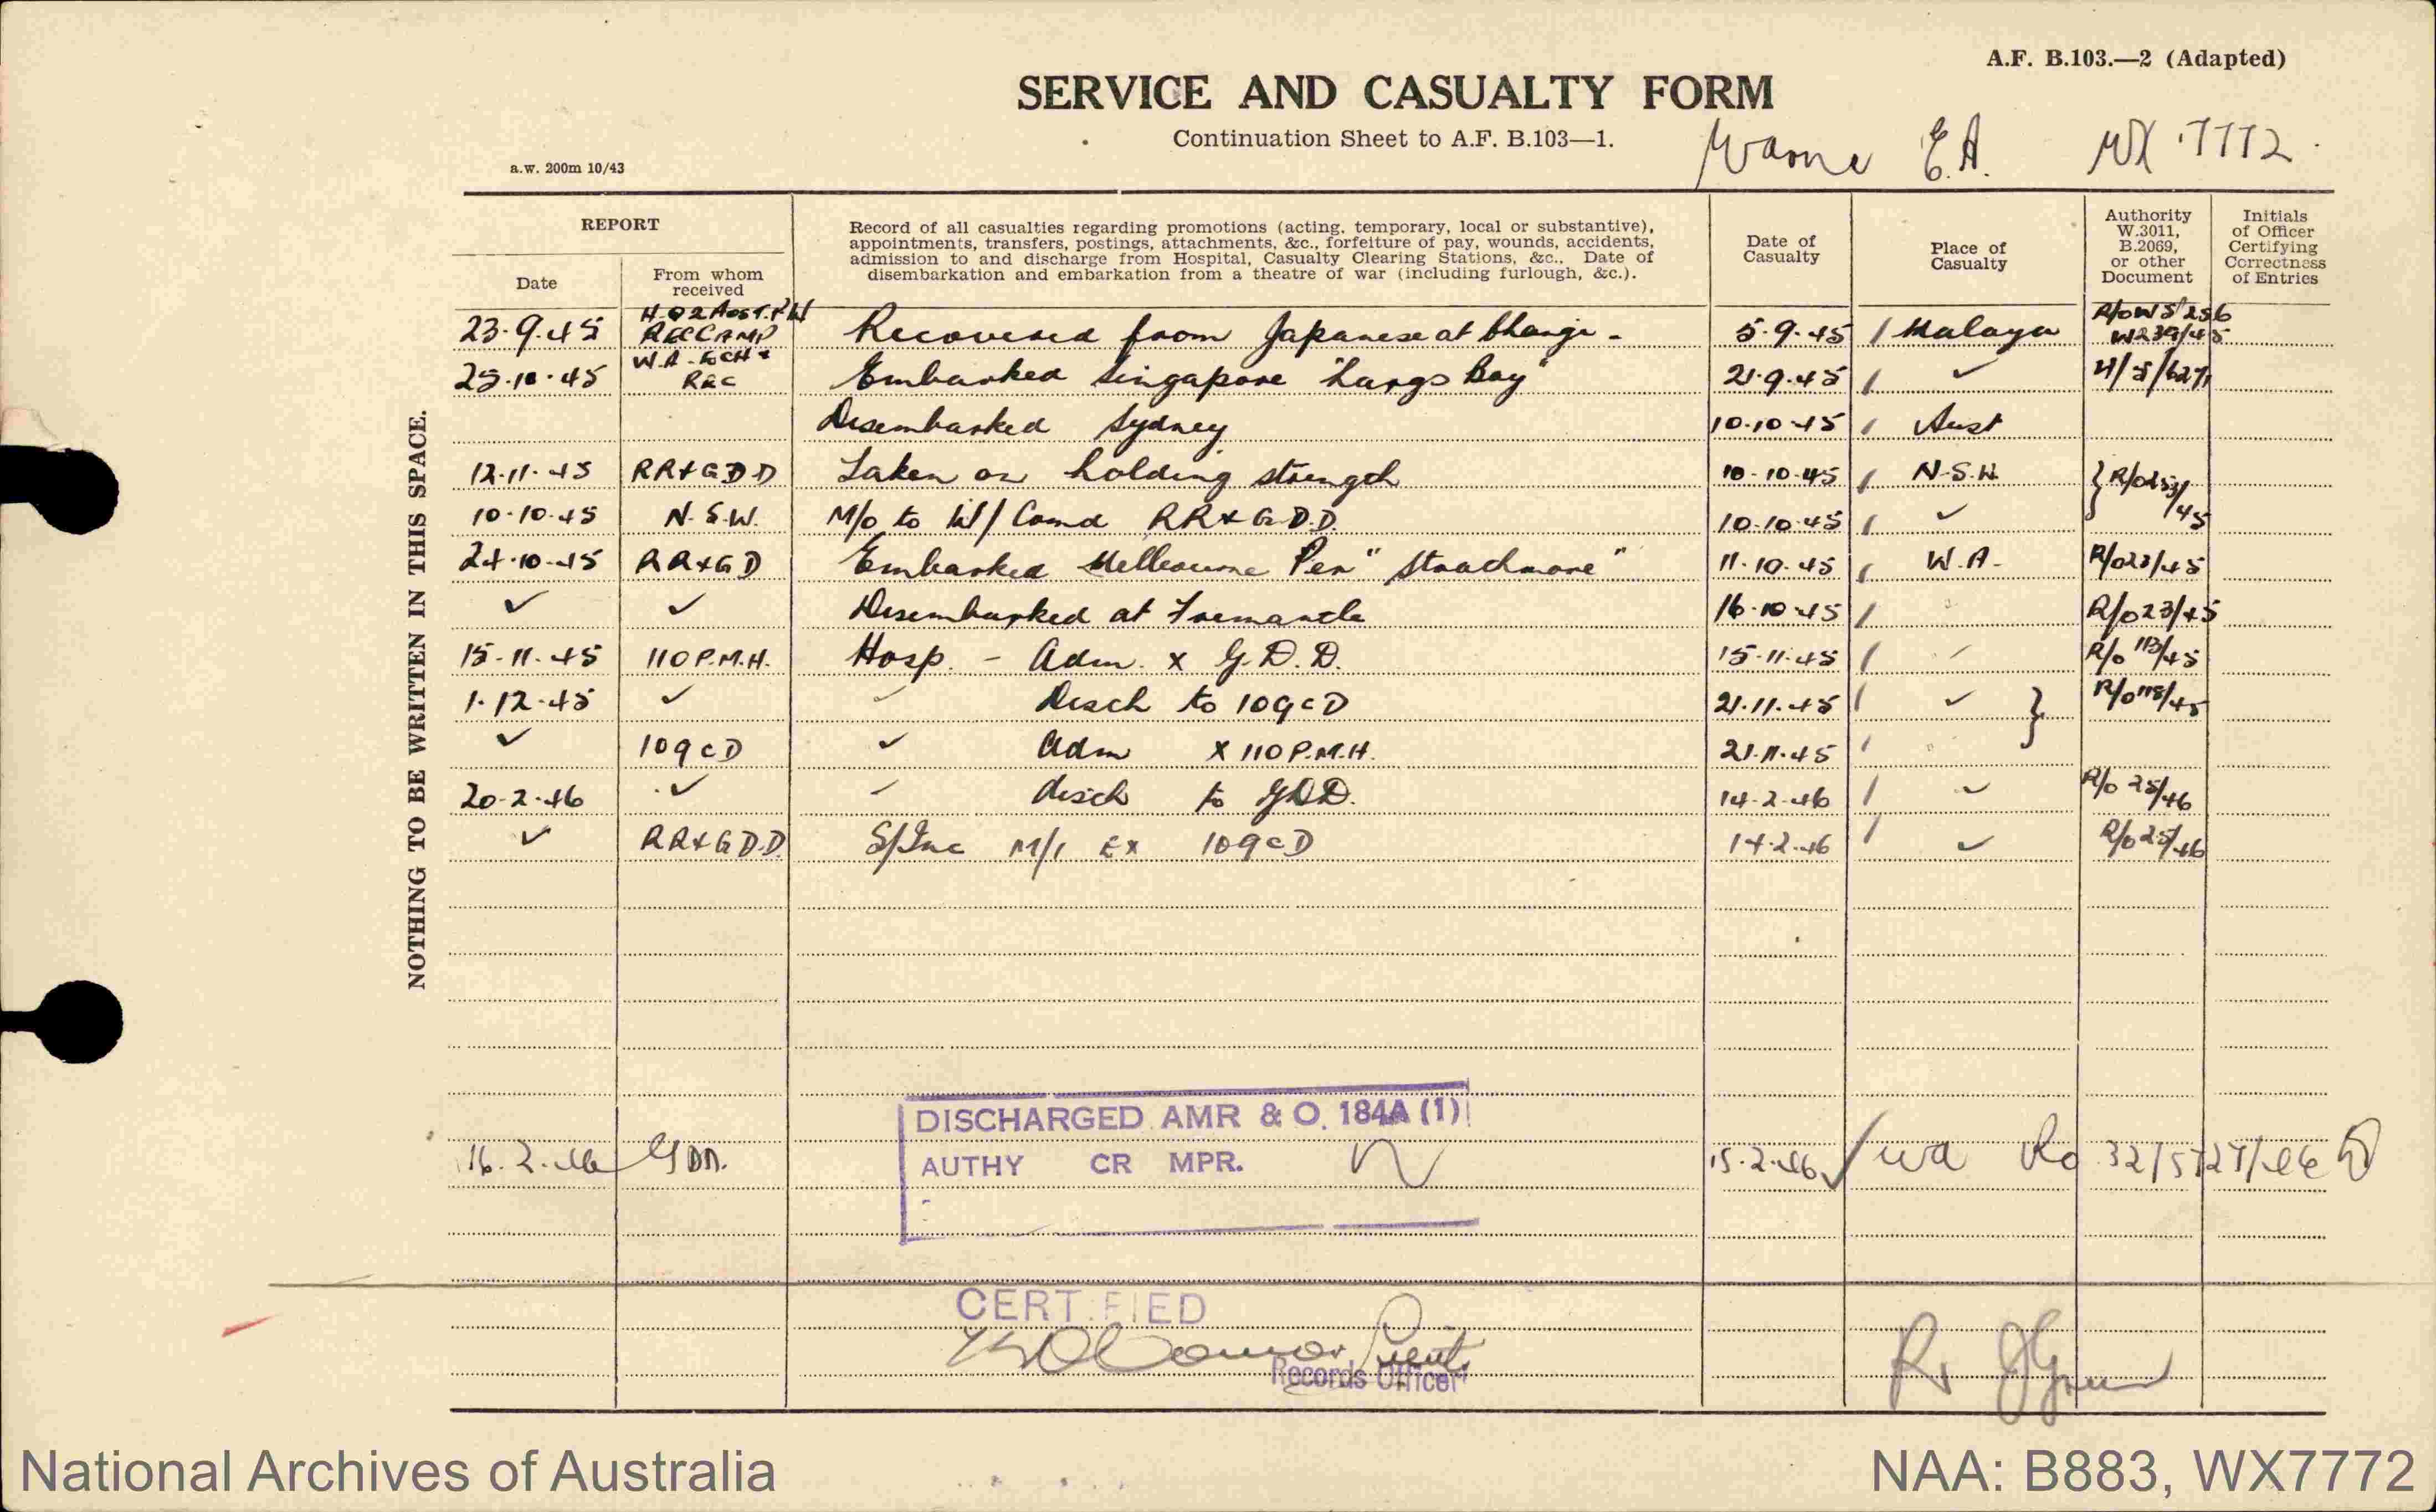 A.F. B.103.—2 (Adapted)
SERVICE AND CASUALTY FORM
Continuation Sheet to A.F. B.103—1.
Warne E.A. WX 7772
a.w. 200m 10/43
REPORT
Date
From whom received
Record of all casualties regarding promotions (acting, temporary, local or substantive),
appointments, transfers, postings, attachments, &c., forfeiture of pay, wounds, accidents,
admission to and discharge from Hospital, Casualty Clearing Stations, &c., Date of
disembarkation and embarkation from a theatre of war (including furlough, &c.).
Date of Casualty
Place of Casualty
Authority W.3011, B.2069, or other Document
Initials of Officer Certifying Correctness of Entries
NOTHING TO BE WRITTEN IN THIS SPACE.
23.9.45 H.Q 2 Aust. P.W REC CAMP Recovered from Japanese at Changi - 5.9.45 Malaya R/O W5/256 W239/45
25.10.45 W.A. Ech & Rec Embarked Singapore "Largs Bay" 21.9.45 ✓
Disembarked Sydney 10.10.45 Aust
12.11.45 RR&GDD Taken on holding strength 10.10.45 N.S.W. R/O 253/45
10.10.45 N.S.W. M/o to W/Comd RR&G.D.D. 10.10.45 ✓
24.10.45 RR&GD Embarked Melbourne Per "Strathmore" 11.10.45 W.A. R/O23/45
✓ ✓ Disembarked at Fremantle 16.10.45 R/O23/45
15.11.45 110 P.M.H. Hosp. - Adm. x G.D.D. 15.11.45 ✓ R/O 113/45
1.12.45 ✓ ✓ Disch to 109CD 21.11.45 ✓ R/O 118/45
✓ 109CD ✓ Adm X 110 P.M.H. 21.11.45
20.2.46 ✓ ✓ disch to GDD. 14.2.46 ✓ R/O 25/46
✓ RR&GD.D. M/I EX 109CD 14.2.46 ✓ R/O 25/46
DISCHARGED AMR & O. 184A (1)
16.2.46 GDD. AUTHY CR MPR. 15.2.46 ✓ WA Ro 32/5727/46
CERTIFIED
Records Officer
National Archives of Australia
NAA: B883, WX7772